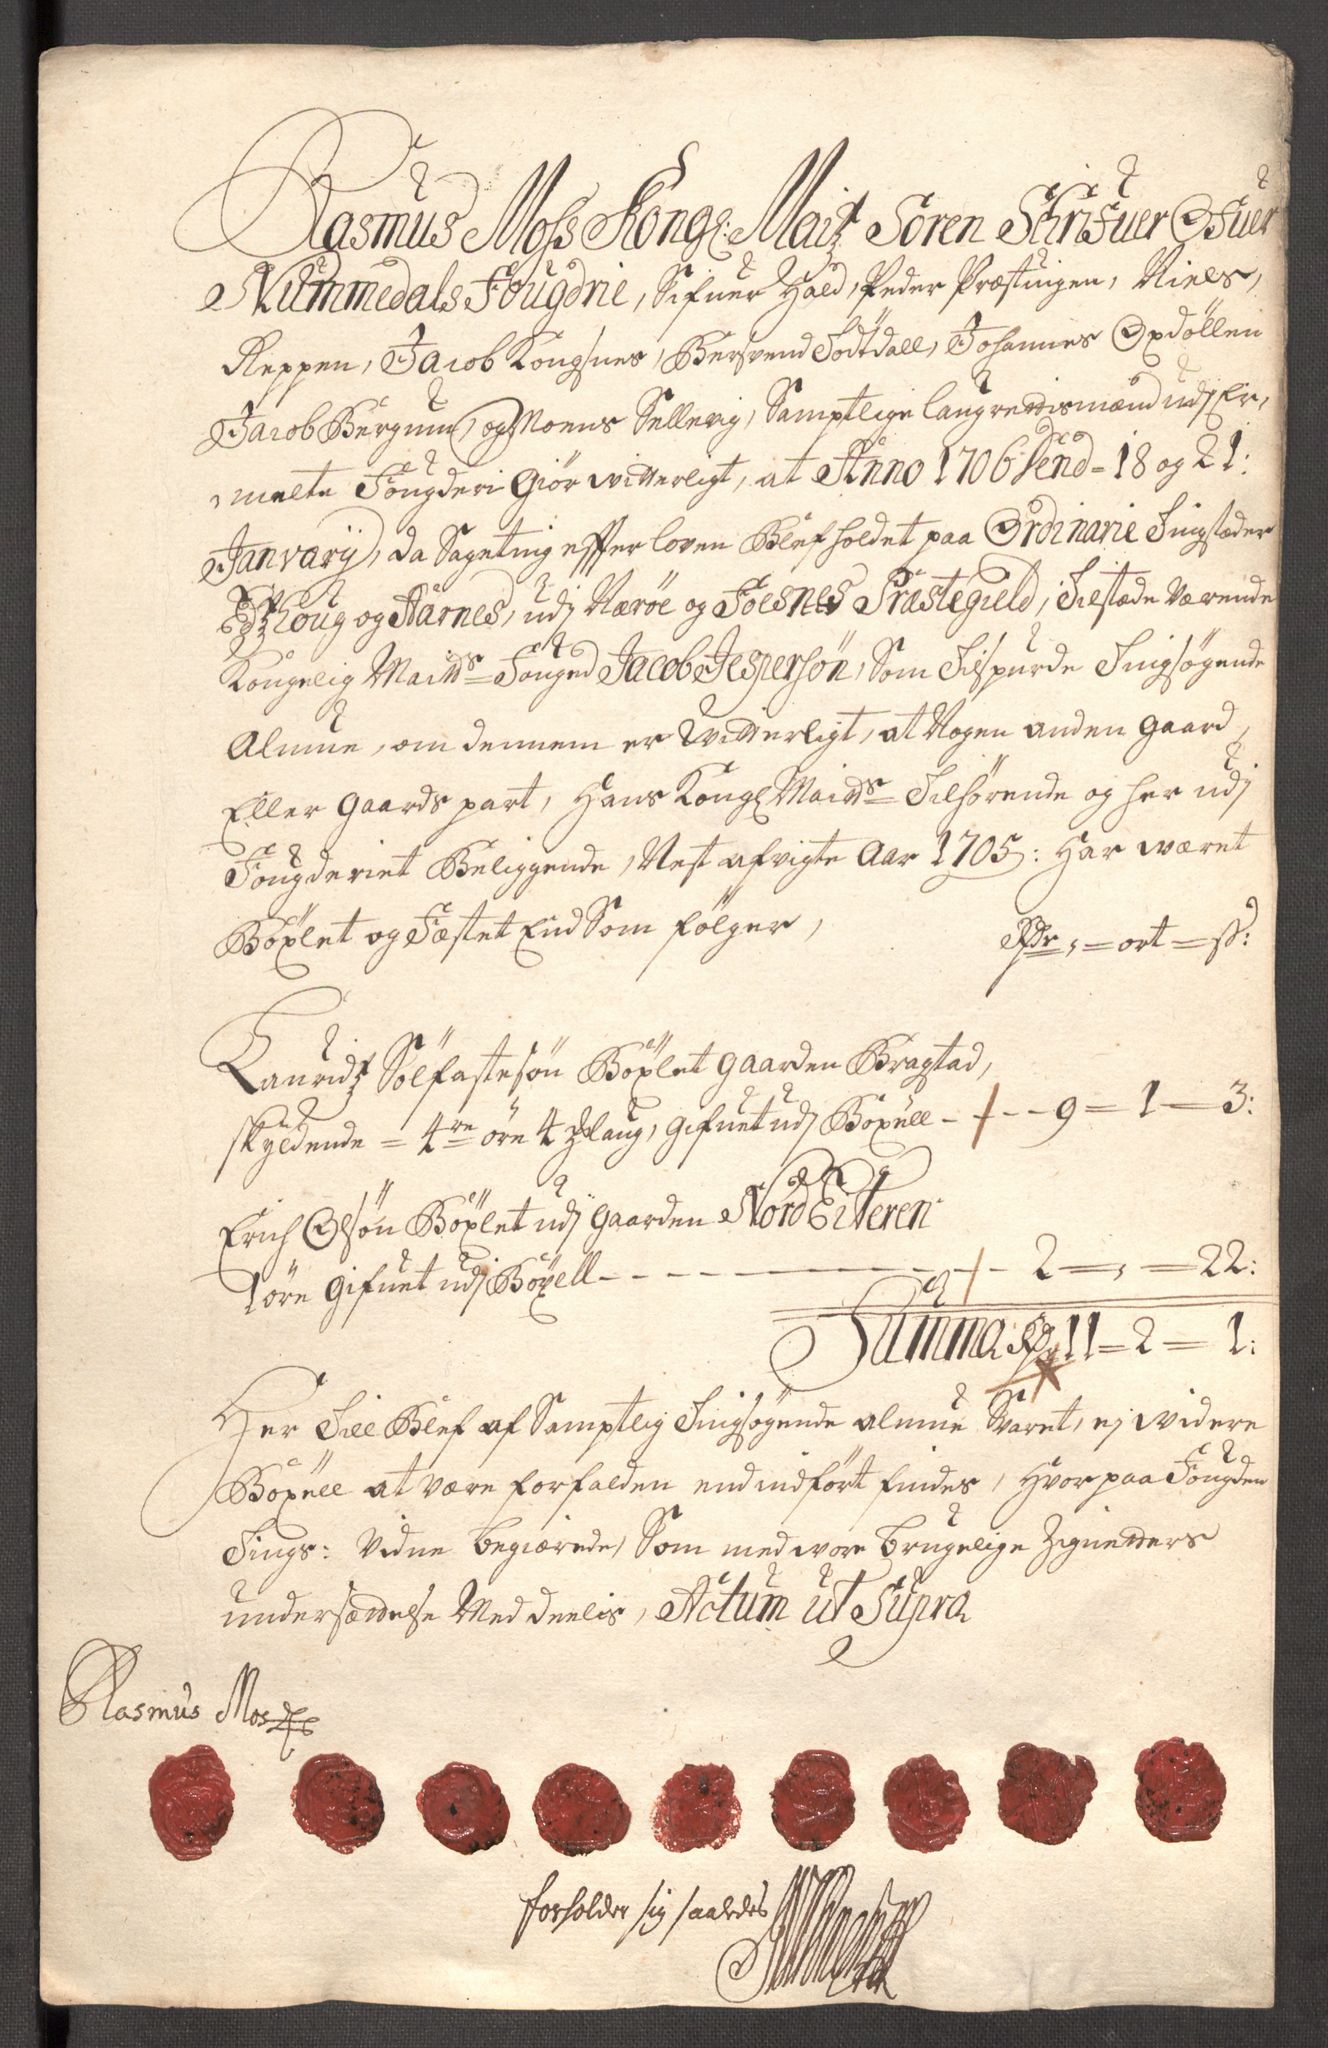 Rasmus Moss Kongl: Maitz Soren Schrifuer Ofuer
Nummedals Fougdrie, Sifuer Hald, Peder Præstingen, Niels
Reppen, Jacob Kongsnes, Bersvend Södtdall, Johannes Opdöllen
Jacob Bergum, og Moens Sellevig, Samptlige laugrettismænd udj Er,
melte Fougderi Giör witterligt, at Anno 1706 dend - 18 og 21:
Janvarij, da Sageting effter loven Blef holdet paa Ordinarie Tingstæder
og Aarnes, udj Nærøe og Foesnes Præstegield, Tilstæde værende
Kongelig Maitts Fouged Jacob Jespersön, Som Tilspurde Tingsøgende
Almue, om dennem er Witterligt, at Nogen anden gaard,
Eller gaards part, Hans Kongl Maitts Tilhørende og her udj
Fougderiet Beliggende, Nest afvigte Aar 1705: Har wæret
Böxlet og Fæstet End Som fölger,
Rdr = ort = s:
Lauridz Sölfastesön Böxlet gaarden Bragstad,
skyldende = 4re öre 4 laug, gifuet udj Böxell - 9 = 1 = 3:
Erich Olsön Böxlet udj gaarden Nord Eiteren
1 öre gifuet udj Böxell - - - 2 = , = 22:
Summa Rdr 11 = 2 = 1:
Her Till Blef af Samptlig Tingsøgende almue Svaret, ej widere
Böxell at være forfalden end indfört findes, Hvorpaa Fougden
Tings: vidne begiærede, Som med wore brugelige Zignetters
undersættelse Meddeelis, Actum ut Supra
Rasmus Moss
forholder sig saaledes